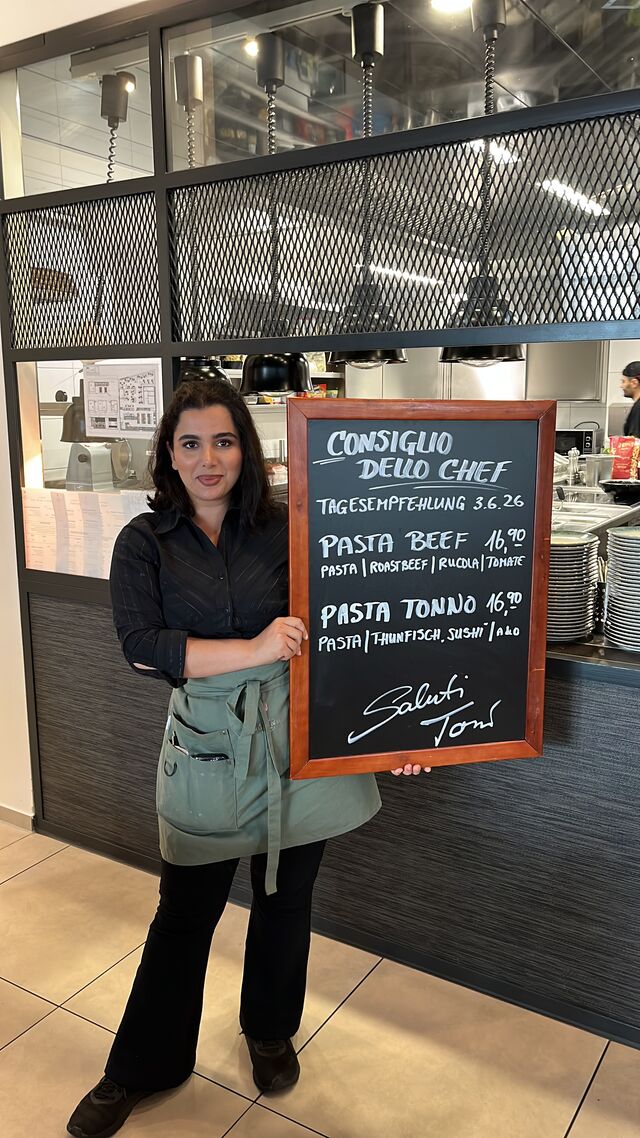 CONSIGLIO
DELLO CHEF
TAGESEMPFEHLUNG 3.6.26
PASTA BEEF 16,90
PASTA | ROASTBEEF | RUCOLA | TOMATE
PASTA TONNO 16,90
PASTA | THUNFISCH "SUSHI" |
Saluti
Toni